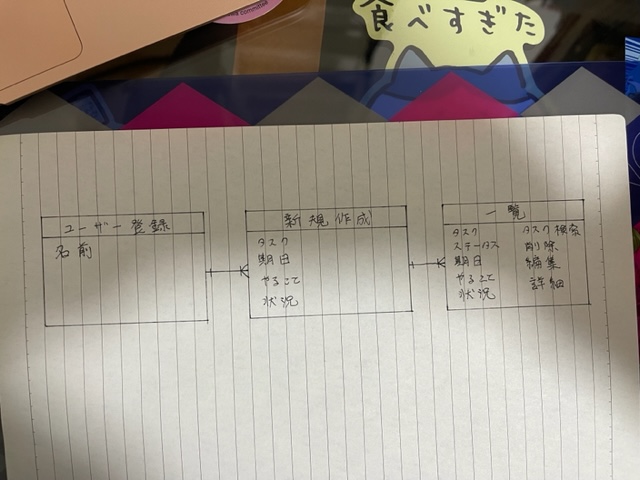 ユーザー登録
名前
新規作成
タスク
期日
やること
状況
一覧
タスク
ステータス
期日
やること
状況
タスク検索
削除
編集
詳細
食べすぎた